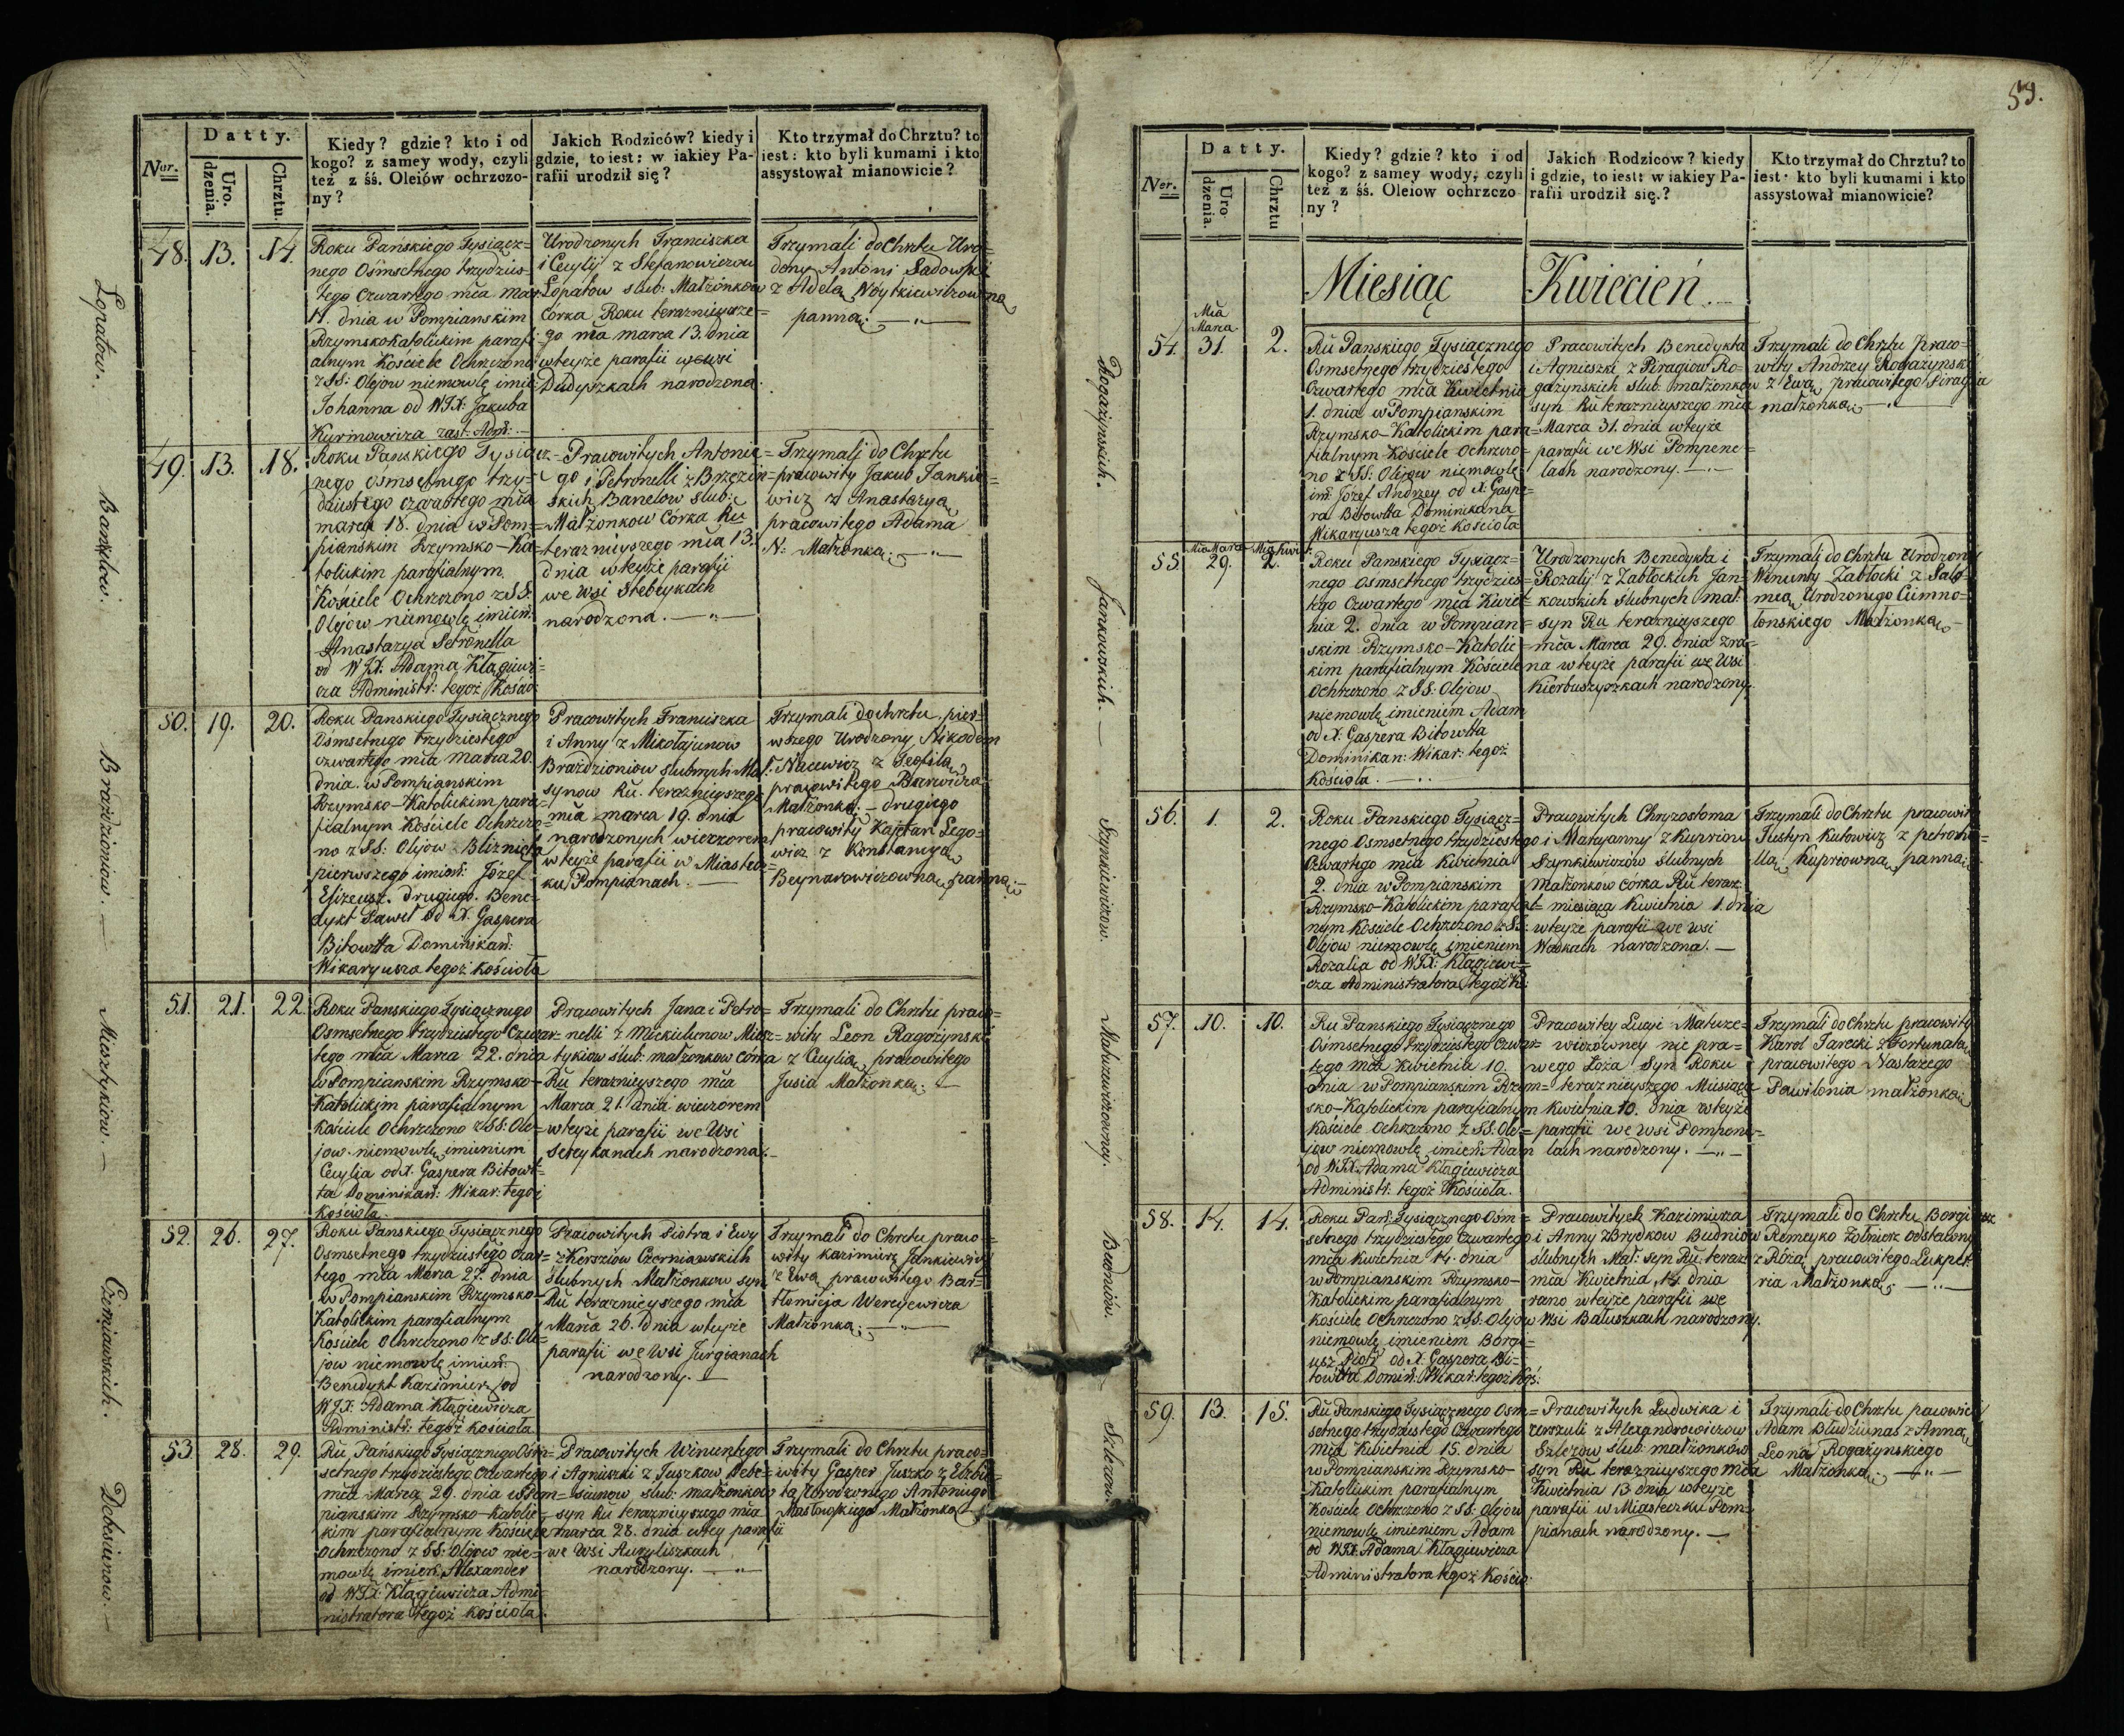 Ner.
Datty.
Uro.
dzenia.
Chrztu.
Kiedy? gdzie? kto i od
kogo? z samey wody, czyli
też z śś. Oleiów ochrzczo-
ny?
Jakich Rodziców? kiedy i
gdzie, to iest: w iakiey Pa-
rafii urodził się?
Kto trzymał do Chrztu? to
iest: kto byli kumami i kto
assystował mianowicie?
Łopatow.
48. 13. 14.
Roku Panskiego Tysiącz=
nego Ośmsetnego trzydzies=
tego Czwartego mca Mar:
14. dnia w Pompianskim
Rzymsko Katolickim parafi=
alnym Kościele Ochrzczono
z SS: Olejow niemowlę imie:
Johanna od WJX: Jakuba
Kurmowicza zast: Adm: —
Urodzonych Franciszka
i Cecylij z Stefanowiczow
Łopatow slub: Małżonkow
Corka Roku teraznieysze=
go mca marca 13. dnia
w teyże parafii we wsi
Dudyszkach narodzona.
Trzymali do Chrztu Uro=
dzony Antoni Sadowski
z Adelą Woytkiewiczowną
panną. —
49. 13. 18.
Roku Panskiego Tysiącz=
nego ośmsetnego trzy=
dziestego czwartego mca
marca 18. dnia w Pom=
pianskim Rzymsko-Ka=
tolickim parafialnym
Kościele Ochrzczono z SS.
Olejow niemowlę imien:
Anastazya Petronella
od WJX. Adama Kłągiewi=
cza Administr: tegoż Kościo:
Pracowitych Antonie=
go i Petronelli z Brzezin=
skich Banelow slub:
Małżonkow Córka Ru
teraznieyszego mca 13.
dnia w teyże parafii
we Wsi Stebeykach
narodzona. —
Trzymali do Chrztu
pracowity Jakub Jankie=
wicz z Anastazyą
pracowitego Adama
N: Małżonką. —
Brażdzioniow. —
50. 19. 20.
Roku Panskiego Tysiącznego
Ośmsetnego trzydziestego
czwartego mca marca 20.
dnia. w Pompianskim
Rzymsko-Katolickim para=
fialnym Kościele Ochrzczo=
no z SS: Olejow Blizniąta
pierwszego imion: Józef
Elizeusz. drugiego. Bene=
dykt Paweł od X. Gaspera
Bitowtta Dominikan:
Wikaryusza tegoż Kościoła
Pracowitych Franciszka
i Anny z Mikołajunow
Brażdzioniow slubnych Mał:
synow Ru. teraznieyszego
mca marca 19. dnia
narodzonych wieczorem
w teyże parafii w Miastecz=
ku Pompianach. —
Trzymali do chrztu. pier=
wszego Urodzony Nikodem
Nacewicz z Teofilą
pracowitego Barwicza
Małżonką. — drugiego
pracowity Kajetan Lego=
wicz z Konstancyą
Beynarowiczowną panną. —
Miesztykiow. —
51. 21. 22.
Roku Panskiego Tysiącznego
Osmsetnego trzydziestego Czwar=
tego mca Marca 22. dnia
w Pompianskim Rzymsko-
Katolickim parafialnym
Kościele Ochrzczono z SS: Ole=
jow. niemowlę imieniem
Cecylia od X. Gaspera Bitowt=
ta Dominikan: Wikar: tegoż
Kościoła.
Pracowitych Jana i Petro=
nelli z Mickielunow Miesz=
tykiow slub: małżonkow córka
Ru teraznieyszego mca
Marca 21. dnia wieczorem
w teyże parafii we Wsi
Seteykanach narodzona. —
Trzymali do Chrztu praco=
wity Leon Ragożynski
z Cecylią pracowitego
Jusia Małżonką. —
Czerniawskich.
52. 26. 27.
Roku Panskiego Tysiącznego
Osmsetnego trzydziestego czwar=
tego mca Marca 27. dnia
w Pompianskim Rzymsko-
Katolickim parafialnym
Kościele Ochrzczono z SS: Ole=
jow niemowlę imien:
Benedykt Kazimierz od
WJX: Adama Kłągiewicza
Administr: tegoż Kościoła
Pracowitych Piotra i Ewy
z Kerszów Czerniawskich
slubnych Małżonkow syn
Ru teraznieyszego mca
Marca 26. dnia w teyże
parafii we Wsi Jurgianach
narodzony. —
Trzymali do Chrztu praco=
wity Kazimierz Jankiewicz
z Ewą pracowitego Bar=
tłomieja Wereycwicza
Małżonką. —
53. 28. 29.
Ru Pańskiego Tysiącznego Ośm=
setnego trzydziestego Czwartego
mca Marca 29. dnia w Pom=
pianskim Rzymsko-Katolic=
kim parafialnym Kościele
Ochrzczono z SS: Olejow nie=
mowlę imien: Alexander
od WJX: Kłągiewicza Admi=
nistratora tegoż Kościoła.
Pracowitych Wincentego
i Agnieszki z Juszkow Debe=
siunow slub: małżonkow
syn Ru teraznieyszego mca
marca 28. dnia w tey parafii
we Wsi Auzyliszkach
narodzony. —
Trzymali do Chrztu praco=
wity Gasper Juszko z Elżbie=
tą Urodzonego Antoniego
Masłowskiego Małżonką
59.
Ner.
Datty.
Uro-
dzenia.
Chrztu
Kiedy? gdzie? kto i od
kogo? z samey wody, czyli
też z śś. Oleiow ochrzczo
ny?
Jakich Rodzicow? kiedy
i gdzie, to iest: w iakiey Pa-
rafii urodził się.?
Kto trzymał do Chrztu? to
iest· kto byli kumami i kto
assystował mianowicie?
Miesiąc Kwiecień. —
Rogażynskich.
54. Mca Marca 31. 2.
Ru Panskiego Tysiącznego
Osmsetnego trzydziestego
Czwartego mca Kwietnia
1. dnia w Pompianskim
Rzymsko-Katolickim para=
fialnym Kościele Ochrzczo=
no z SS: Olejow niemowlę
im: Józef Andrzey od X. Gaspe=
ra Bitowtta Dominikana
Wikaryusza tegoż Kościoła
Pracowitych Benedykta
i Agnieszki z Piragiow Ro=
gażynskich slub: małżonkow
syn Ru teraznieyszego mca
Marca 31. dnia w teyże
parafii we Wsi Pompene=
lach narodzony. —
Trzymali do Chrztu praco=
wity Andrzey Rogażynski
z Ewą pracowitego Piragia
małżonką —
Jankowskich. —
55. Mca Marca 29. Mca Kwie: 2.
Roku Panskiego Tysiącz=
nego osmsetnego trzydzies=
tego Czwartego mca Kwiet=
nia 2. dnia w Pompian=
skim Rzymsko-Katolic=
kim parafialnym Kościele
Ochrzczono z SS: Olejow
niemowlę imieniem Adam
od X. Gaspera Bitowtta
Dominikan: Wikar: tegoż
Kościoła. —
Urodzonych Benedykta i
Rozalij z Zabłockich Jan=
kowskich slubnych mał:
syn Ru teraznieyszego
mca Marca 29. dnia zra=
na w teyże parafii we Wsi
Kierbuszyszkach narodzony.
Trzymali do Chrztu Urodzony
Wincenty Zabłocki z Salo=
meą Urodzonego Cimno=
łonskiego Małżonką —
Szynkiewiczow.
56. 1. 2.
Roku Panskiego Tysiącz=
nego Osmsetnego trzydziestego
Czwartego mca Kwietnia
2. dnia w Pompianskim
Rzymsko-Katolickim parafial=
nym Kościele Ochrzczono z SS:
Olejow niemowlę imieniem
Rozalia od WJX: Kłągiewi=
cza Administratora tegoż Ko:
Pracowitych Chryzostoma
i Maryanny z Kuprion
Szynkiewiczów slubnych
Małżonków córka Ru teraz:
miesiąca Kwietnia 1. dnia
w teyże parafii we wsi
Waśkach narodzona. —
Trzymali do Chrztu pracowity
Justyn Kutowicz z petrone=
llą Kupriowną panną
57. 10. 10.
Ru Panskiego Tysiącznego
Ośmsetnego trzydziestego Czwar=
tego mca Kwietnia 10.
dnia w Pompianskim Rzym=
sko-Katolickim parafialnym
Kościele Ochrzczono z SS: Ole=
jow niemowlę imien: Adam
od WJX. Adama Kłągiewicza
Administr: tegoż Kościoła.
Pracowitey Lucyi Matuze=
wiczowney nie pra=
wego Łoża Syn Roku
teraznieyszego Miesiąca
Kwietnia 10. dnia w teyże
parafii we wsi Pompene=
lach narodzony. —
Trzymali do Chrztu pracowity
Karol Jarecki z Fortunatą
pracowitego Nastazego
Pawilonia małżonką
Budniów.
58. 14. 14.
Roku Pań: Tysiącznego Ośm=
setnego trzydziestego Czwartego
mca Kwietnia 14. dnia
w Pompianskim Rzymsko-
Katolickim parafialnym
Kościele Ochrzczono z SS: Olejow
niemowlę imieniem Borgi=
usz Piotr od X: Gaspera Bi=
towtta Domin: Wikar: tegoż Koś:
Pracowitych Kazimierza
i Anny z Brydkow Budniow
slubnych Mał: syn Ru teraz:
mca Kwietnia 14. dnia
rano w teyże parafii we
Wsi Bałuszkach narodzony.
Trzymali do Chrztu Borgiusz
Remeyko Żołnierz odstawny
z Różą pracowitego Lukpet=
ria Małżonką —
Szlezow.
59. 13. 15.
Ru Panskiego Tysiącznego Osm=
setnego trzydziestego Czwartego
mca Kwietnia 15. dnia
w Pompianskim Rzymsko-
Katolickim parafialnym
Kościele Ochrzczono z SS: Olejow
niemowlę imieniem Adam
od WJX. Adama Kłągiewicza
Administratora tegoż Kościo:
Pracowitych Ludwika i
Urszuli z Alexandrowiczow
Szlezow slub: małżonków
syn Ru teraznieyszego mca
Kwietnia 13 dnia w teyże
parafii w Miasteczku Pom=
pianach narodzony. —
Trzymali do Chrztu pacowity
Adam Dludziunas z Anną
Leona Rogażynskiego
Małżonką —